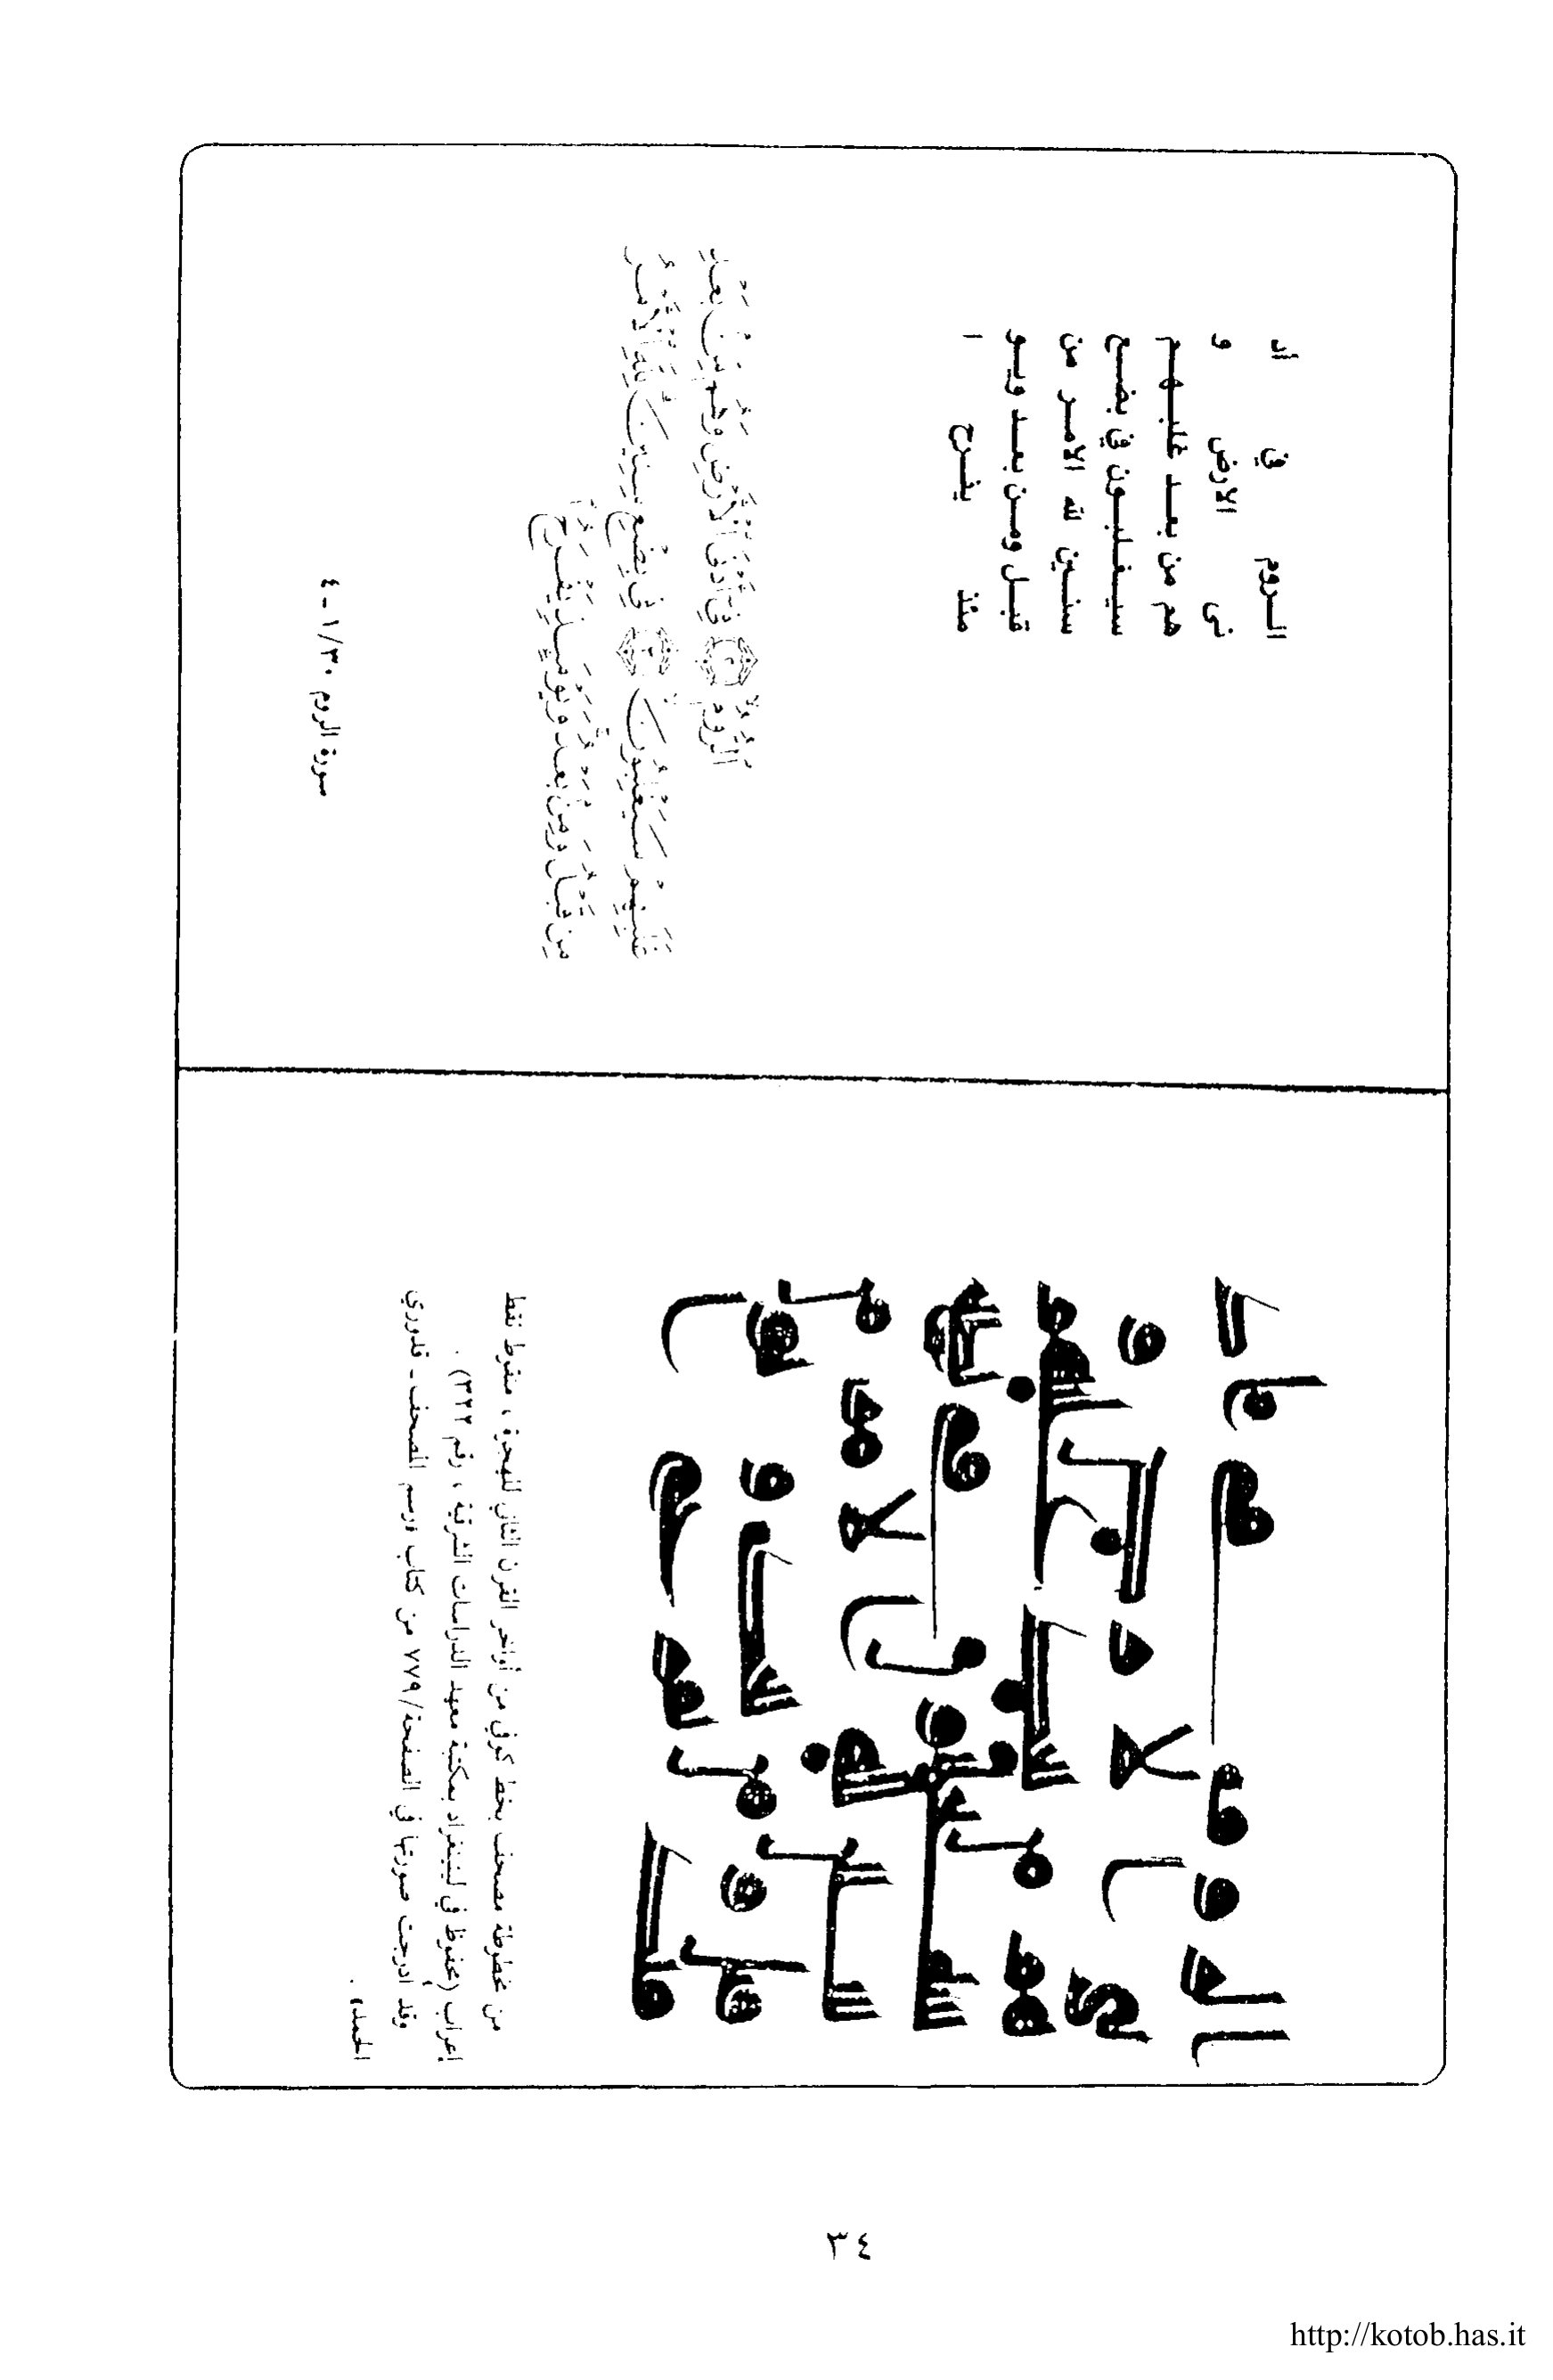 الروم في اد
نى الارض و
هم من بعد غلبهم
سيغلبون في بضع
سنين لله الامر من
قبل ومن بعد ويو
مئذ يفرح ا
من مخطوطة مصحف بخط كوفي من أواخر القرن الثاني للهجرة ، منقوط نقط
إعراب (محفوظ في لينينغراد بمكتبة معهد الدراسات الشرقية ، رقم ٣٢٢) .
وقد أدرجت صورتها في الصفحة/٧٧٩ من كتاب رسم المصحف ـ قدوري
الحمد .
الـروم في اد
نى الارض و
هم من بعـد غلبـهـم
سيـغـلبـون في بضـع
سنـين لله الامـر من
قبـل ومـن بعـد ويـو
مئذ يفـرح ا
ٱلرُّومُ ٢ فِىٓ أَدْنَى ٱلْأَرْضِ وَهُم مِّنۢ بَعْدِ
غَلَبِهِمْ سَيَغْلِبُونَ ٣ فِى بِضْعِ سِنِينَ لِلَّهِ ٱلْأَمْرُ
مِن قَبْلُ وَمِنۢ بَعْدُ وَيَوْمَئِذٍ يَفْرَحُ
سورة الروم ٣٠/١ ـ ٤
٣٤
http://kotob.has.it